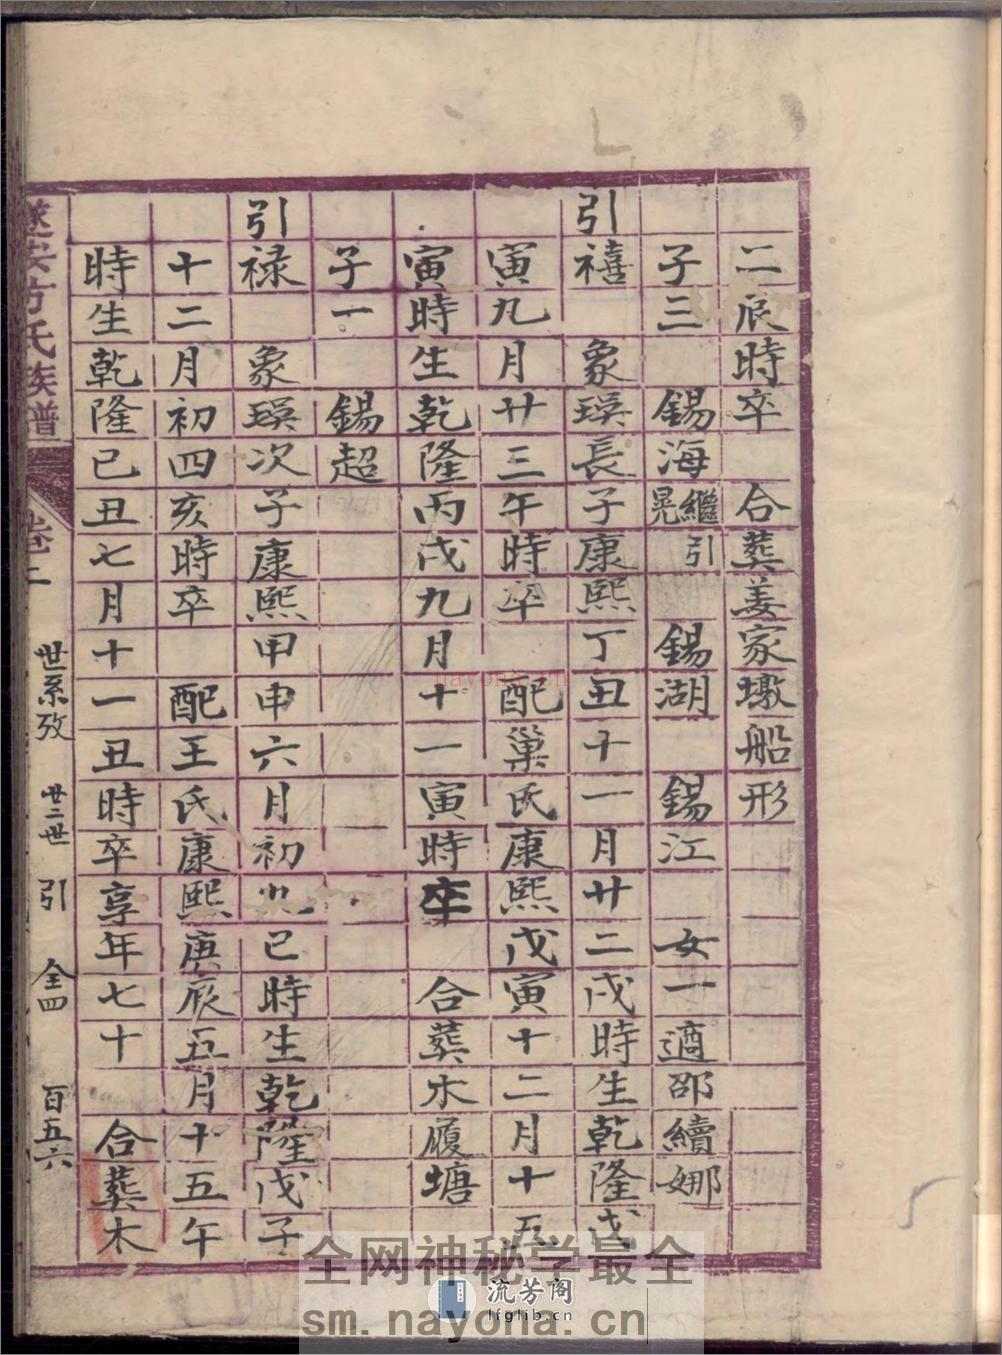 二辰時卒 合葬姜家墩船形
子三 錫海繼引晃 錫湖 錫江 女一適邵續娜
引禧 象瑛長子康熙丁丑十一月廿二戌時生乾隆戊
寅九月廿三午時卒 配巢氏康熙戊寅十二月十五
寅時生乾隆丙戌九月十一寅時卒 合葬木履塘
子一 錫超
引祿 象瑛次子康熙甲申六月初九巳時生乾隆戊子
十二月初四亥時卒 配王氏康熙庚辰五月十五午
時生乾隆己丑七月十一丑時卒享年七十 合葬木
遂安方氏族譜 卷二 世系攷 廿二世 引 仝四 百五六
nayona.cn
全网神秘学最全
流芳阁
lfglib.cn
sm.nayona.cn